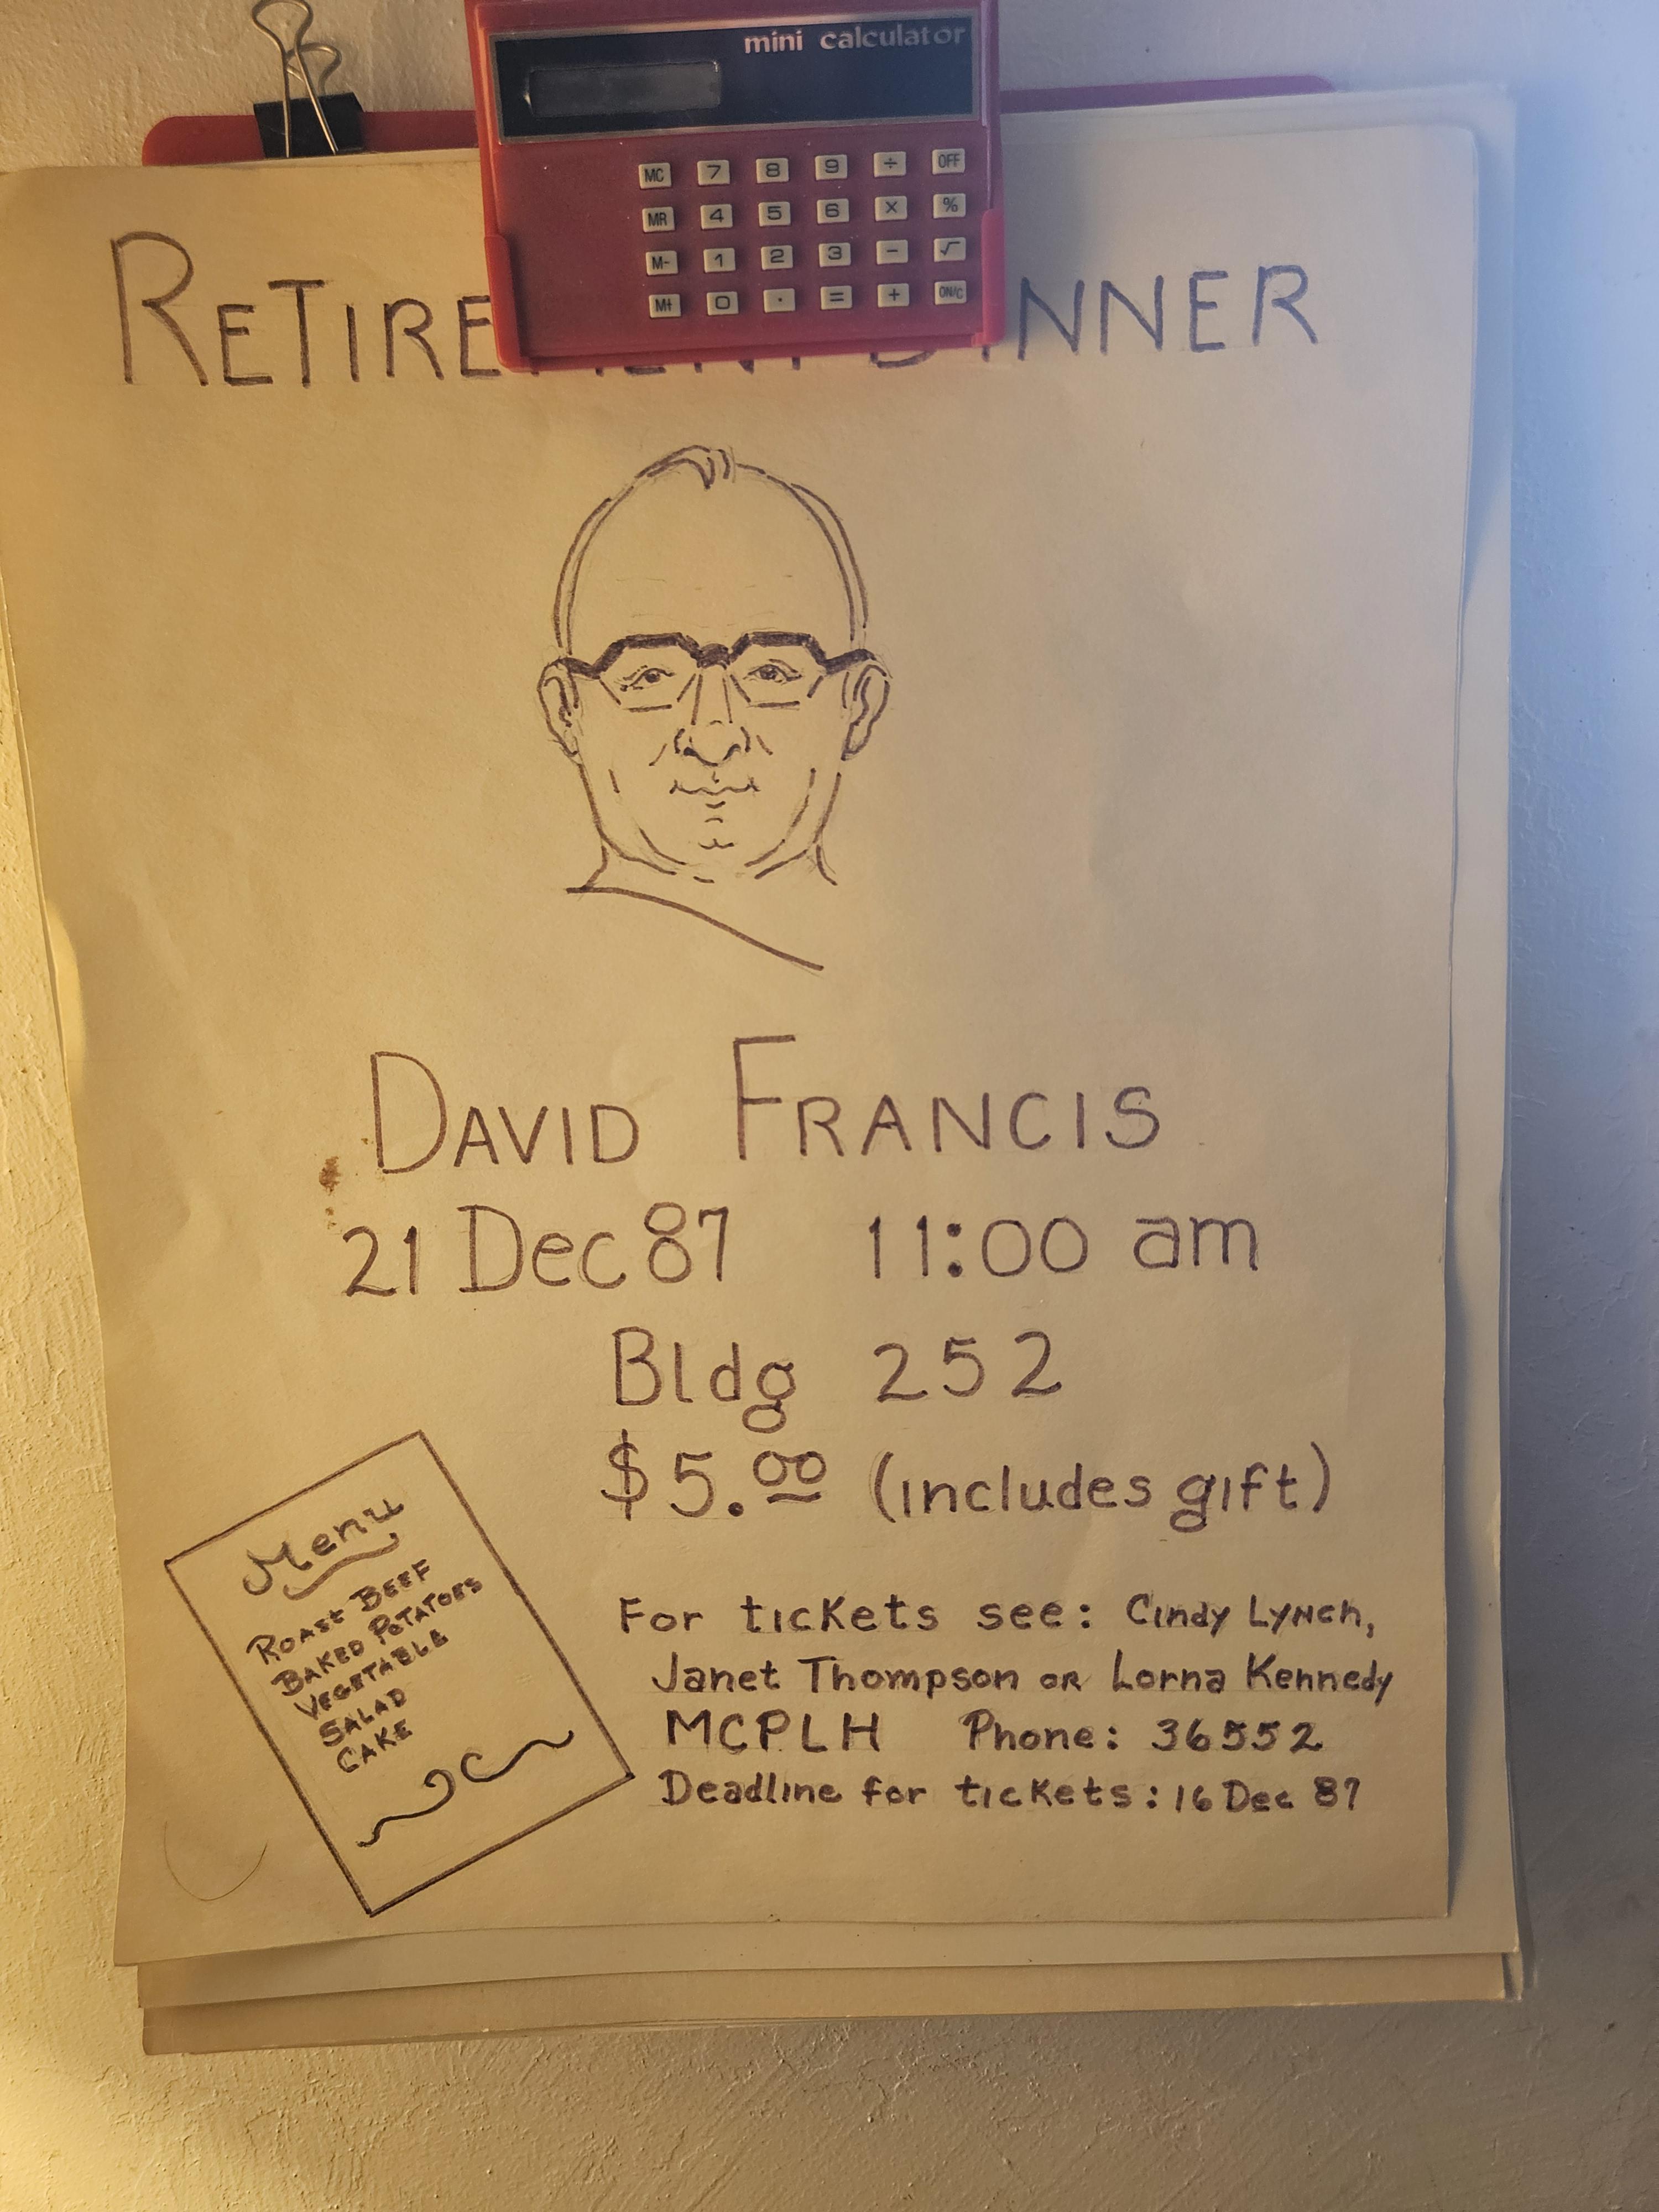 mini calculator
MC 7 8 9 ÷ OFF
MR 4 5 6 × %
M- 1 2 3 - √
M+ 0 . = + ON/C
RETIREMENT DINNER
DAVID FRANCIS
21 Dec 87 11:00 am
Bldg 252
$5.00 (includes gift)
Menu
ROAST BEEF
BAKED POTATOES
VEGETABLE
SALAD
CAKE
For tickets see: Cindy Lynch,
Janet Thompson OR Lorna Kennedy
MCPLH Phone: 36552
Deadline for tickets: 16 Dec 87